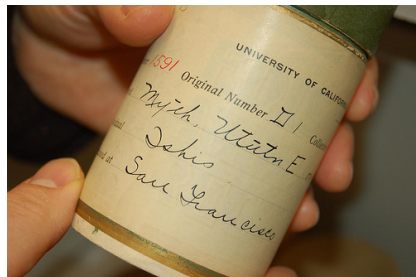 UNIVERSITY OF CALIFOR
1591 Original Number II 1 Colle
Myth, Ututn E
Ishi
ed at San Francisco